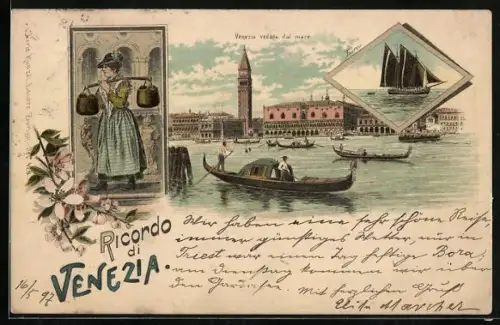 Venezia veduta dal mare
Ricordo
di
VENEZIA.
16/5 97
Wir haben eine sehr schöne Reise,
immer günstiges Wetter, nur in
Triest war einen Tag heftige Bora,
am Dienstag kommen wir über
den Mit herzlichen Gruß
Elise